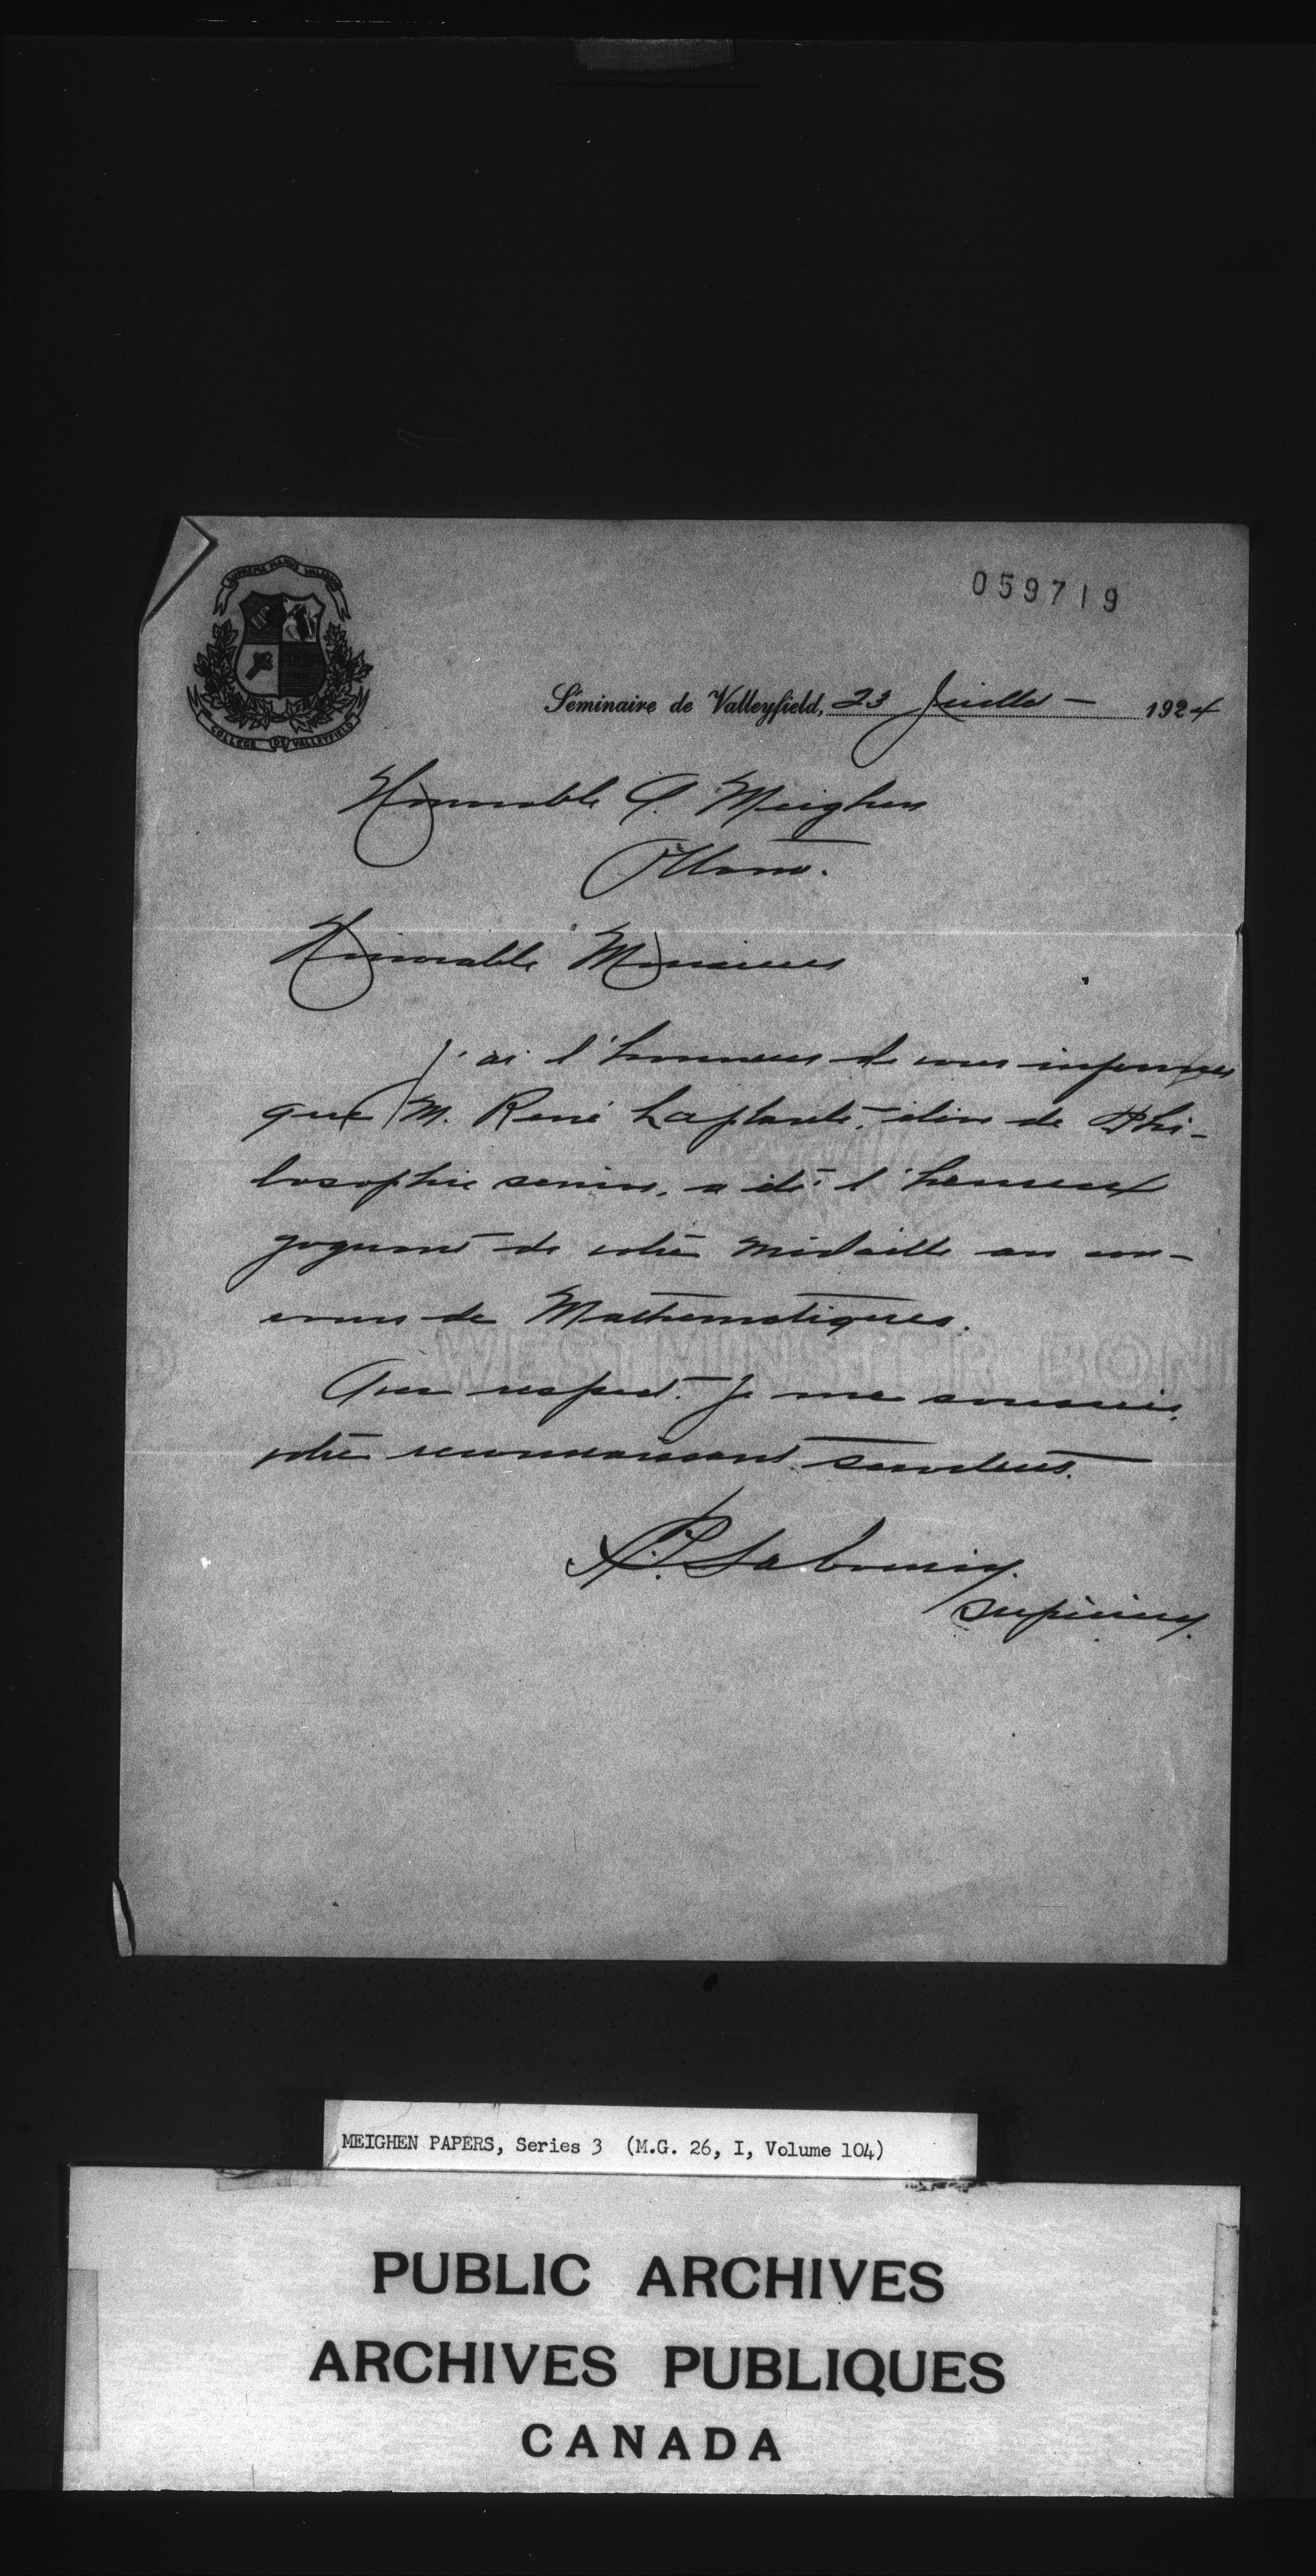 SUPREMA MANUS VALIDIOR
COLLEGE DE VALLEYFIELD
059719
Séminaire de Valleyfield, 23 Juillet - 1924
Honorable A. Meighen
Ottawa.
Honorable Monsieur
J'ai l'honneur de vous informer
que M. René Laplante, élève de Phi-
losophie senior, a été l'heureux
gagnant de votre médaille au con-
cours de Mathématiques.
WESTMINSTER BON
Avec respect je me souscris,
votre reconnaissant serviteur.
P. Sabourin,
supérieur.
MEIGHEN PAPERS, Series 3 (M.G. 26, I, Volume 104)
PUBLIC ARCHIVES
ARCHIVES PUBLIQUES
CANADA